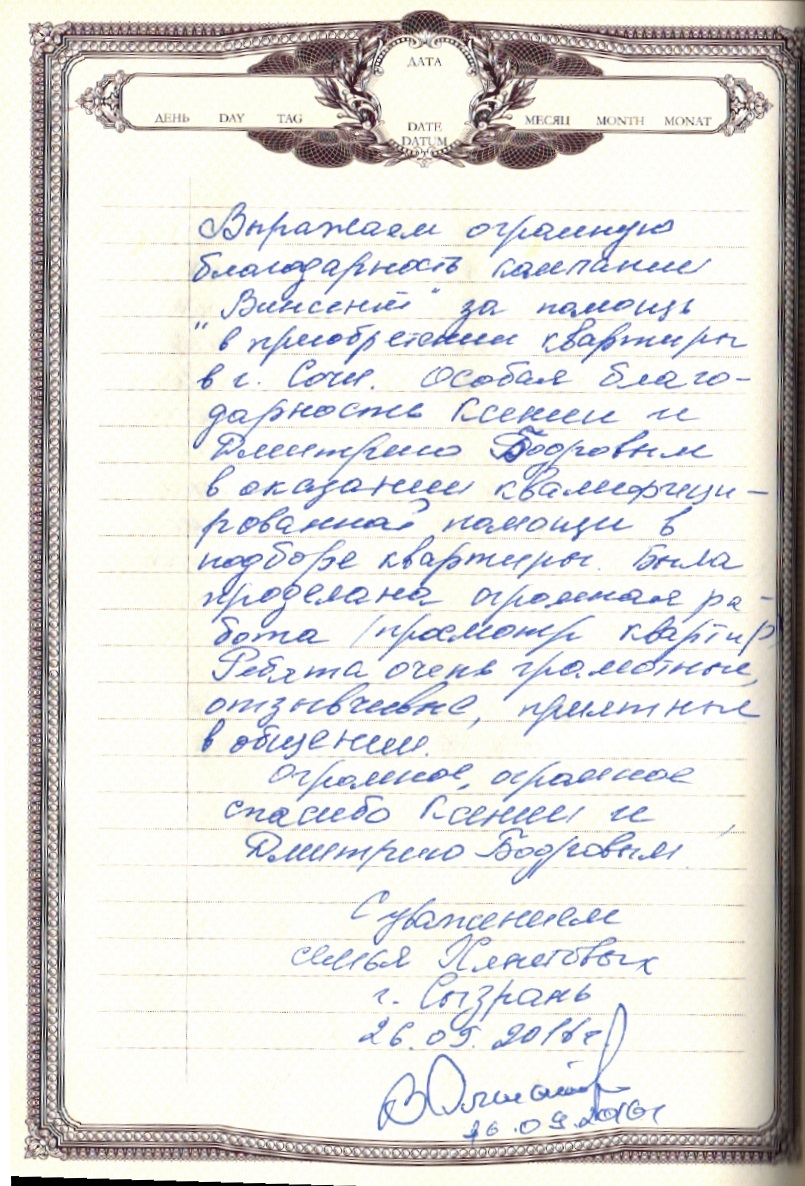 ДАТА
ДЕНЬ DAY TAG
МЕСЯЦ MONTH MONAT
DATE
DATUM
Выражаем огромную
благодарность компании
"Винсент" за помощь
в приобретении квартиры
в г. Сочи. Особая благо-
дарность Ксении и
Дмитрию Бодровым
в оказании квалифици-
рованной помощи в
подборе квартиры. Была
проделана огромная ра-
бота (просмотр квартир)
Ребята очень грамотные,
отзывчивые, приятные
в общении.
Огромное, огромное
спасибо Ксении и
Дмитрию Бодровым.
С уважением
семья
г. Сызрань
26.09.2016 г.
26.09.2016г